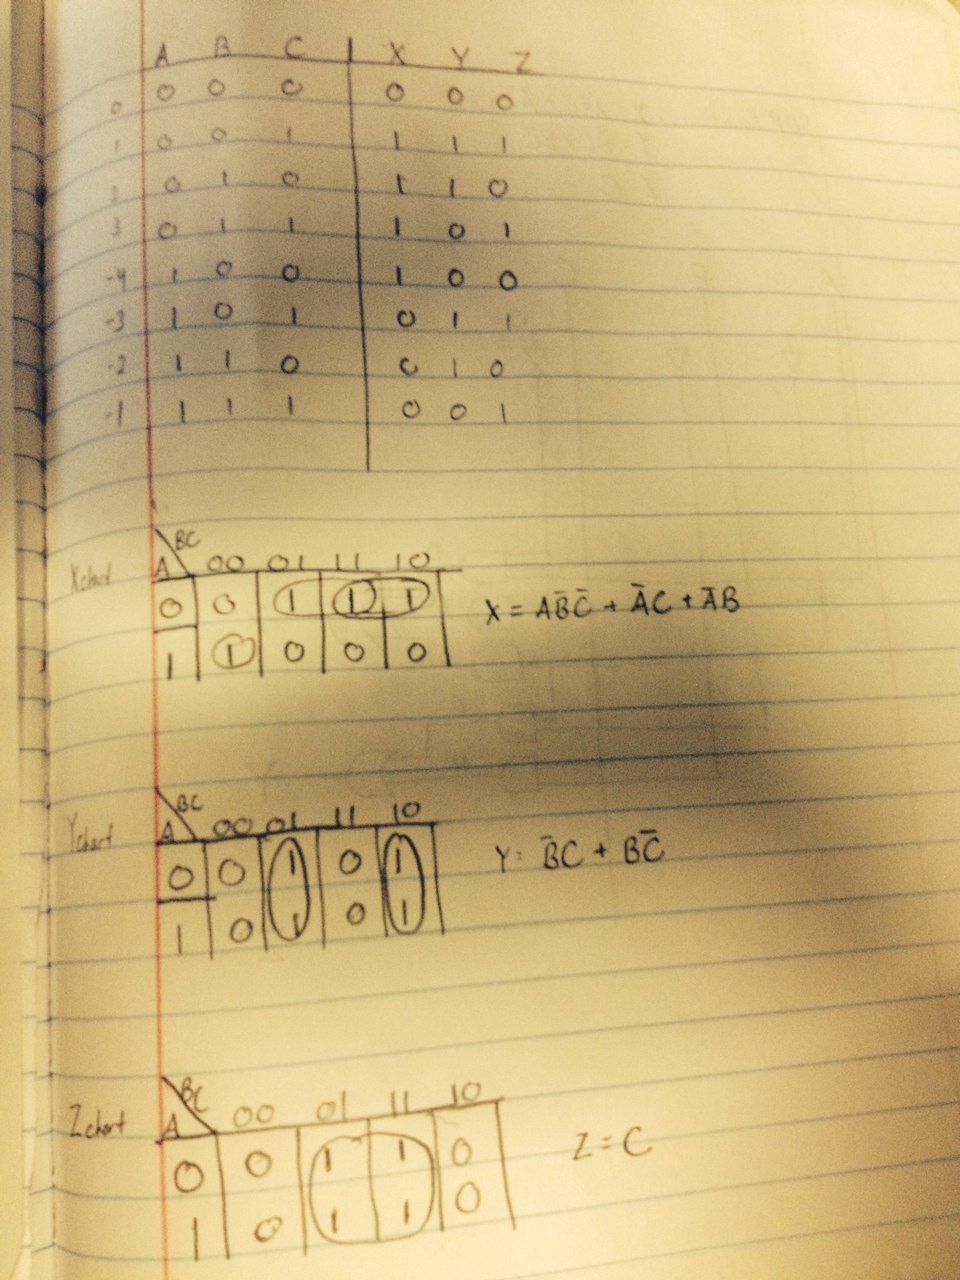 A B C X Y Z
0 0 0 0 0 0 0
1 0 0 1 1 1 1
2 0 1 0 1 1 0
3 0 1 1 1 0 1
-4 1 0 0 1 0 0
-3 1 0 1 0 1 1
-2 1 1 0 0 1 0
-1 1 1 1 0 0 1
X chart A BC 00 01 11 10
0 0 1 1 1 X = AB̅C̅ + A̅C + A̅B
1 1 0 0 0
Y chart A BC 00 01 11 10
0 0 1 0 1 Y = B̅C + BC̅
1 0 1 0 1
Z chart A BC 00 01 11 10
0 0 1 1 0 Z = C
1 0 1 1 0